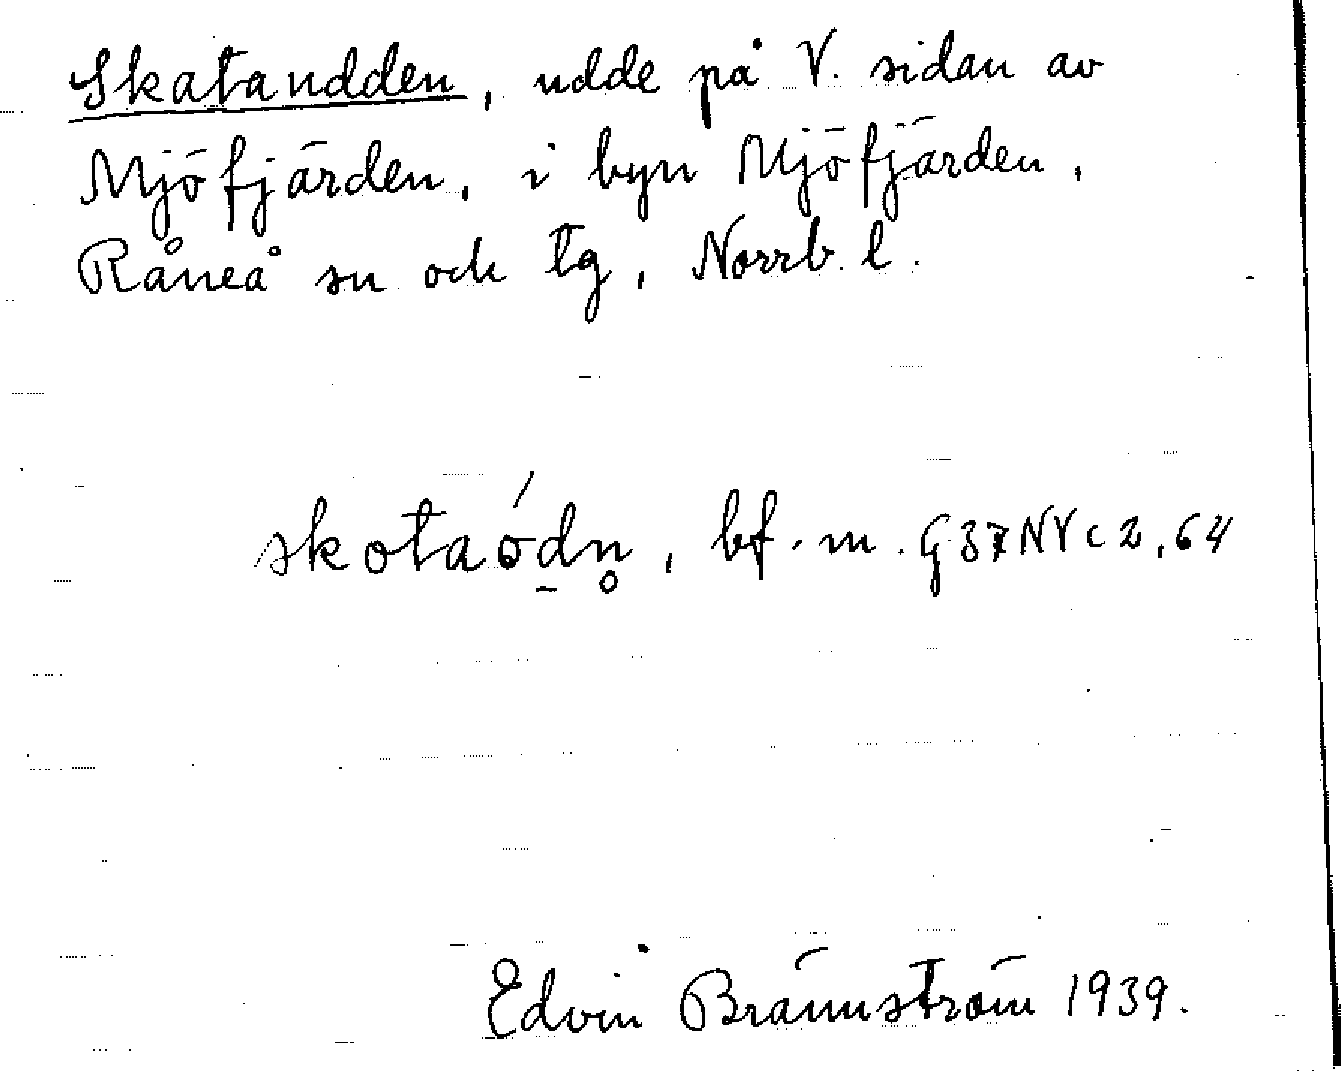 Skatandden, udde på V. sidan av
Mjöfjärden, i byn Mjöfjärden,
Råneå sn och tg, Norrb. l.
skataódn̥, bf. m. G37NVc2,64
Edvin Brännström 1939.